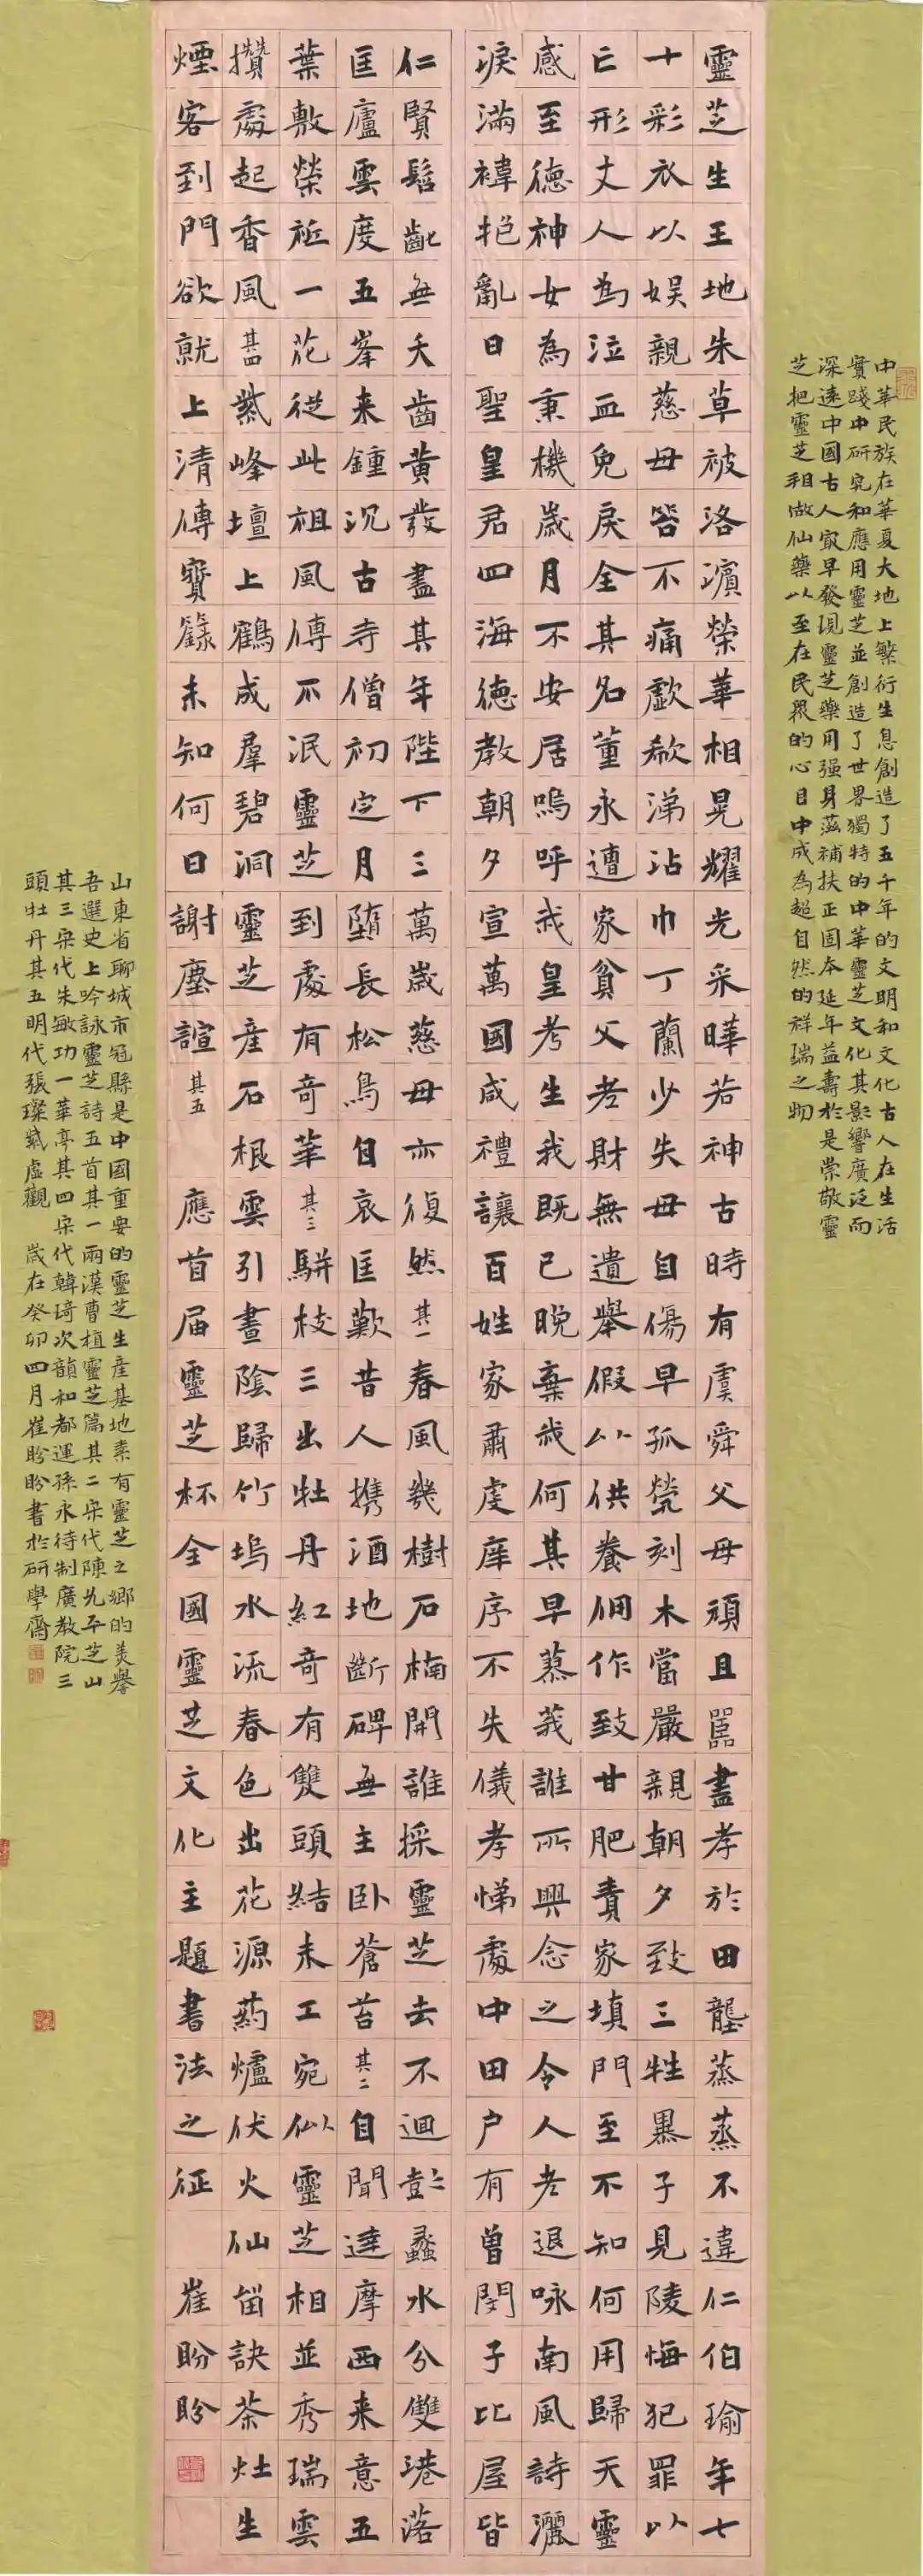 中華民族在華夏大地上繁衍生息創造了五千年的文明和文化古人在生活
實踐中研究和應用靈芝並創造了世界獨特的中華靈芝文化其影響廣泛而
深遠中國古人最早發現靈芝藥用强身滋補扶正固本延年益壽於是崇敬靈
芝把靈芝稱做仙藥以至在民眾的心目中成為超自然的祥瑞之物
靈芝生王地朱草被洛濱榮華相晃耀光采曄若神古時有虞舜父母頑且嚚盡孝於田壟蒸蒸不違仁伯瑜年七
十彩衣以娛親慈母笞不痛歔欷涕沾巾丁蘭少失母自傷早孤煢刻木當嚴親朝夕致三牲暴子見陵悔犯罪以
亡形丈人為泣血免戾全其名董永遭家貧父老財無遺舉假以供養佣作致甘肥責家填門至不知何用歸天靈
感至德神女為秉機歲月不安居嗚呼我皇考生我既已晚棄我何其早慕莪誰所興念之令人老退咏南風詩灑
淚滿褘抱亂曰聖皇君四海德教朝夕宣萬國咸禮讓百姓家肅虔庠序不失儀孝悌處中田户有曾閔子比屋皆
仁賢髫齔無夭齒黃髮盡其年陛下三萬歲慈母亦復然其一春風幾樹石楠開誰採靈芝去不迴彭蠡水分雙港落
匡廬雲度五峯来鍾沉古寺僧初定月墮長松鳥自哀匡歎昔人携酒地斷碑無主卧蒼苔其二自聞達摩西来意五
葉敷榮祉一花從此祖風傳不泯靈芝到處有奇華其三駢枝三出牡丹紅奇有雙頭結未工宛似靈芝相並秀瑞雲
攢處起香風其四紫峰壇上鶴成羣碧洞靈芝産石根雲引晝陰歸竹塢水流春色出花源药爐伏火仙留訣茶灶生
煙客到門欲就上清傳寶籙未知何日謝塵諠其五 應首届靈芝杯全國靈芝文化主題書法之征 崔盼盼
山東省聊城市冠縣是中國重要的靈芝生産基地素有靈芝之鄉的美譽
吾選史上吟詠靈芝詩五首其一兩漢曹植靈芝篇其二宋代陳九平芝山
其三宋代朱敏功一華亭其四宋代韓琦次韻和都運孫永待制廣教院三
頭牡丹其五明代張璨紫虛觀 歲在癸卯四月崔盼盼書於研學齋